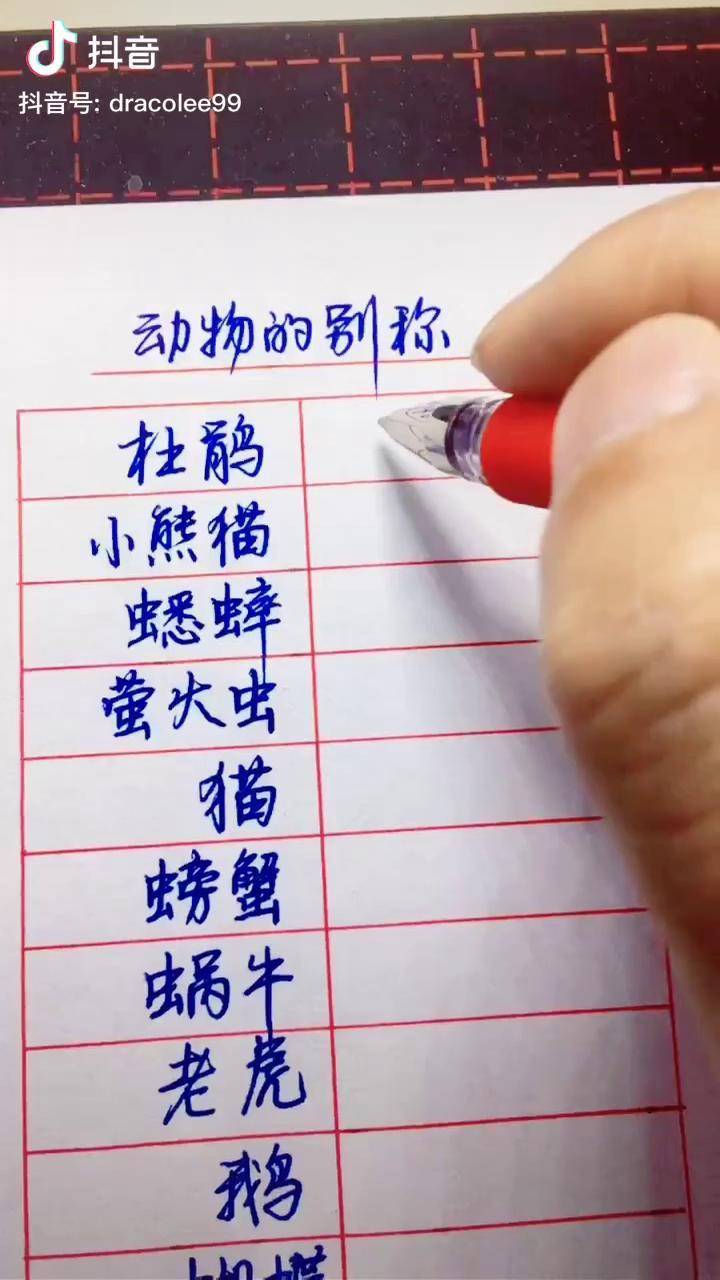 抖音
抖音号: dracolee99
动物的别称
杜鹃
小熊猫
蟋蟀
萤火虫
猫
螃蟹
蜗牛
老虎
鹅
蝴蝶